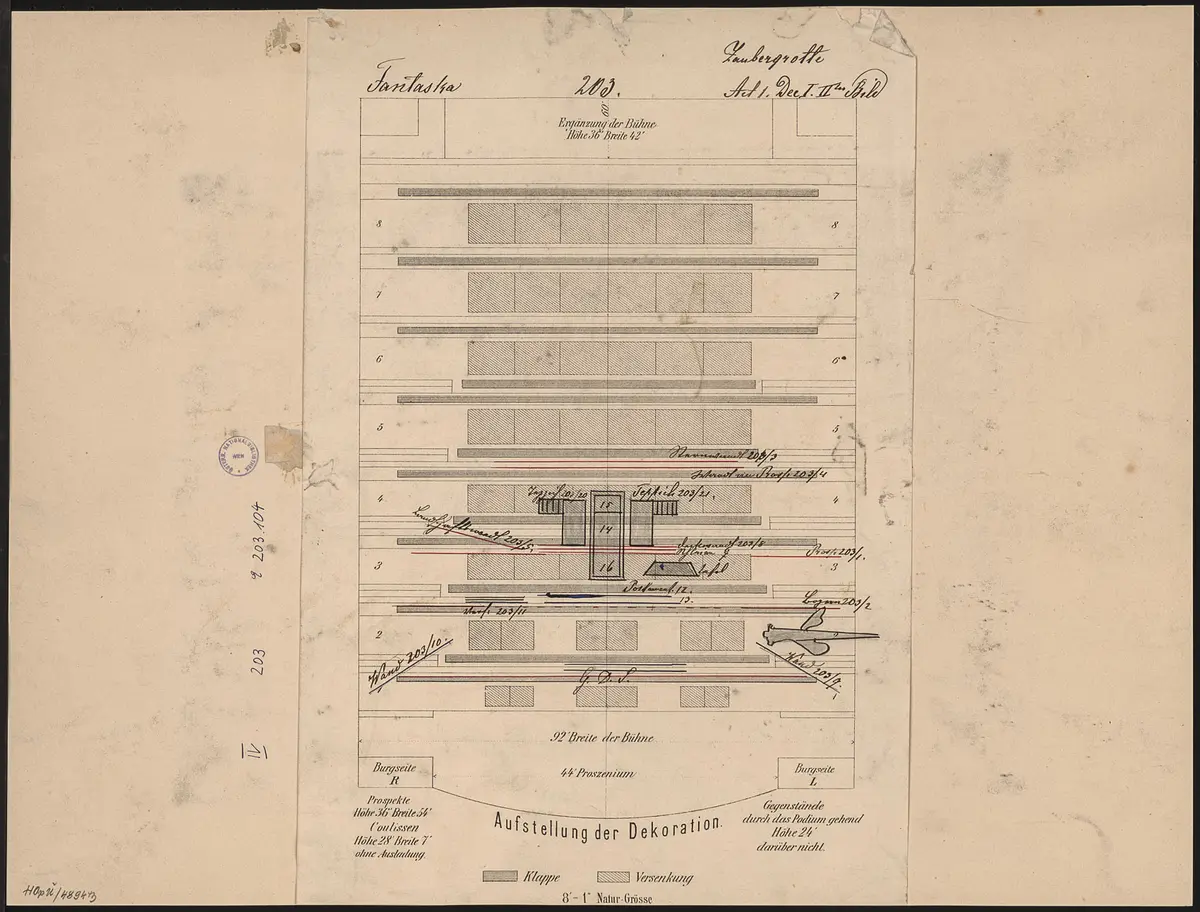 Zaubergrotte
Fantaska 203. Act 1. Dec I. IItes Bild
60'
Ergänzung der Bühne
Höhe 36' Breite 42'
8 8
7 7
6 6
5 5
203/3
Prosp. 203/4
4 4
203/20 Teppich 203/21.
15
14
Landschaftswand 203/5.
203/8
Prosp. 203/1.
3 16 Tafel 3
Postament 12.
13.
Vers. 203/11 Bogen 203/2
2 2
Wand 203/10. Wand 203/9.
G. D. S.
92' Breite der Bühne
44' Proszenium
Burgseite
R
Burgseite
L
Prospekte
Höhe 36' Breite 54'
Coulissen
Höhe 28' Breite 7'
ohne Ausladung.
Gegenstände
durch das Podium gehend
Höhe 24'
darüber nicht.
Aufstellung der Dekoration.
Klappe Versenkung
8' - 1" Natur-Grösse
NATIONALBIBLIOTHEK
WIEN
IV 203 203 104